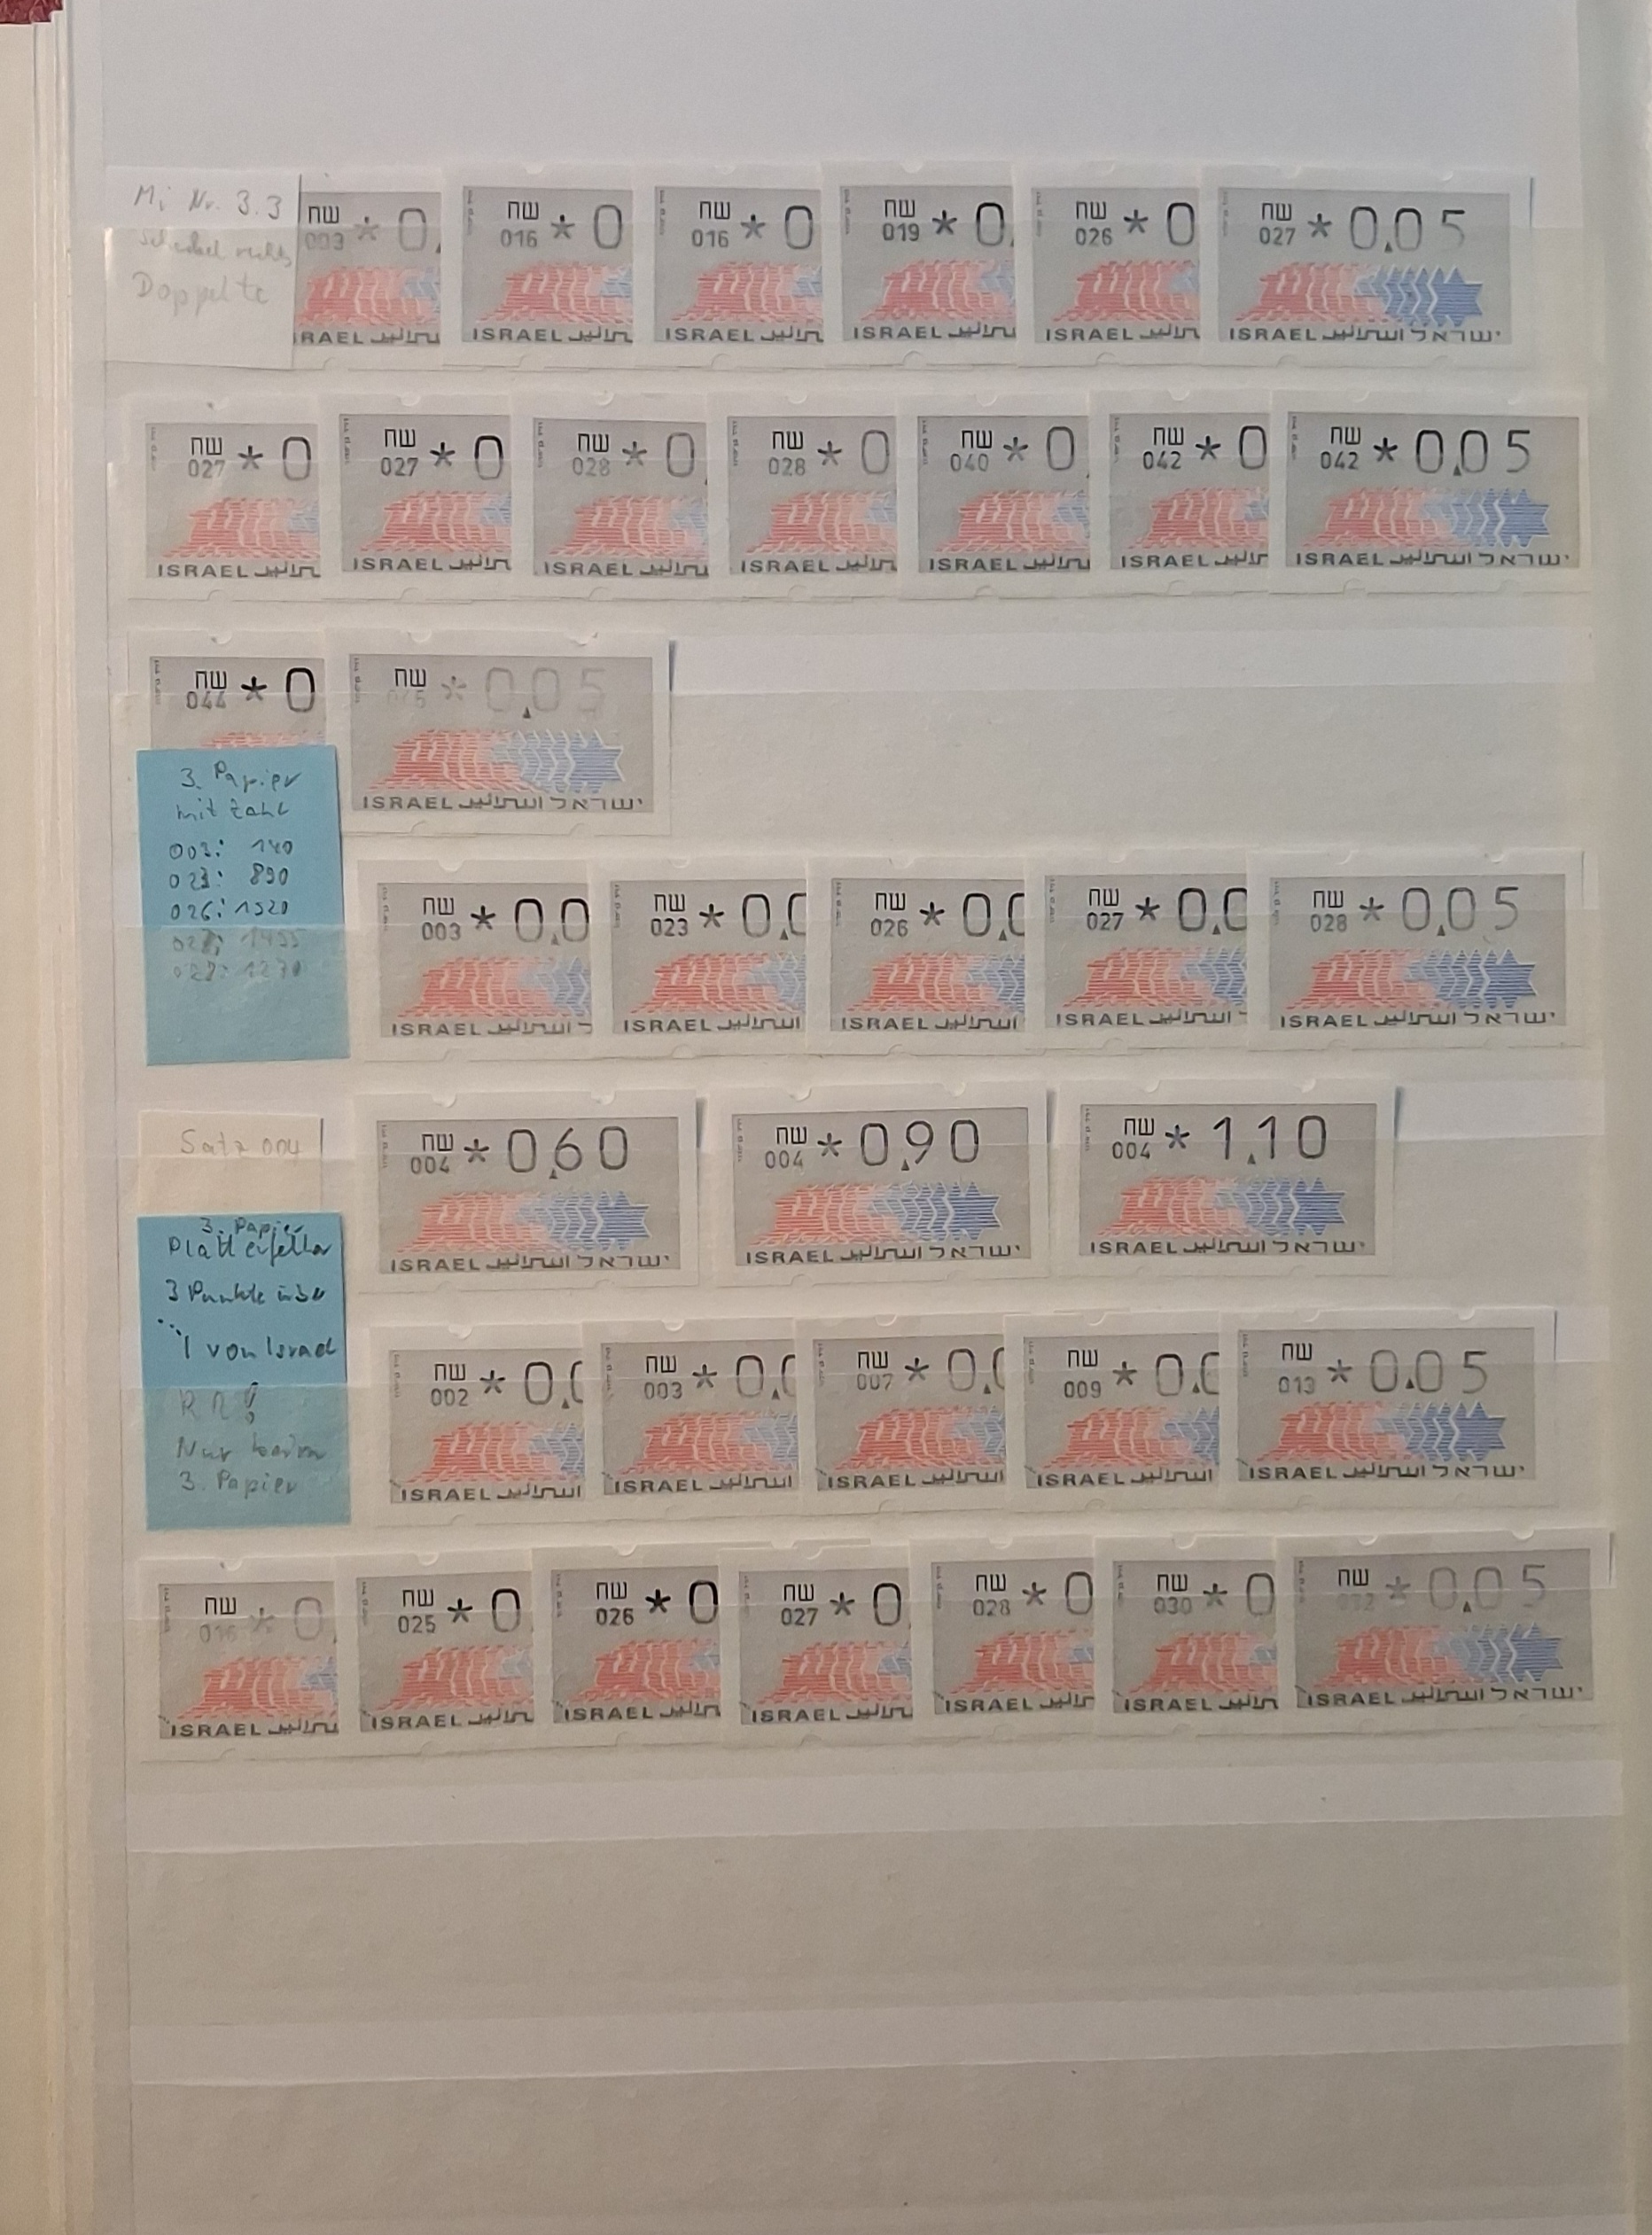 Mi Nr. 3.3
Doppelte
שח
003 * 0.
ISRAEL
שח
016 * 0
ISRAEL
שח
016 * 0
ISRAEL
שח
019 * 0.
ISRAEL
שח
026 * 0
ISRAEL
שח
027 * 0.05
ISRAEL اسرائيل ישראל
שח
027 * 0
ISRAEL
שח
027 * 0
ISRAEL
שח
028 * 0
ISRAEL
שח
028 * 0
ISRAEL
שח
040 * 0
ISRAEL
שח
042 * 0
ISRAEL
שח
042 * 0.05
ISRAEL اسرائيل ישראל
שח
044 * 0
שח
* 0.05
ISRAEL اسرائيل ישראל
3. Papier
mit Zahl
003: 140
023: 890
026: 1520
028: 1270
שח
003 * 0.0
ISRAEL اسرائيل
שח
023 * 0.0
ISRAEL اسرائيل
שח
026 * 0.0
ISRAEL اسرائيل
שח
027 * 0.0
ISRAEL اسرائيل
שח
028 * 0.05
ISRAEL اسرائيل ישראל
Satz 004
שח
004 * 0.60
ISRAEL اسرائيل ישראל
שח
004 * 0.90
ISRAEL اسرائيل ישראל
שח
004 * 1.10
ISRAEL اسرائيل ישראל
3. Papier
Plattenfehler
3 Punkte über
I von Israel
Nur beim
3. Papier
שח
002 * 0.0
ISRAEL اسرائيل
שח
003 * 0.0
ISRAEL اسرائيل
שח
007 * 0.0
ISRAEL اسرائيل
שח
009 * 0.0
ISRAEL اسرائيل
שח
013 * 0.05
ISRAEL اسرائيل ישראל
שח
016 * 0.
ISRAEL
שח
025 * 0
ISRAEL
שח
026 * 0
ISRAEL
שח
027 * 0
ISRAEL
שח
028 * 0
ISRAEL
שח
030 * 0
ISRAEL
שח
* 0.05
ISRAEL اسرائيل ישראל